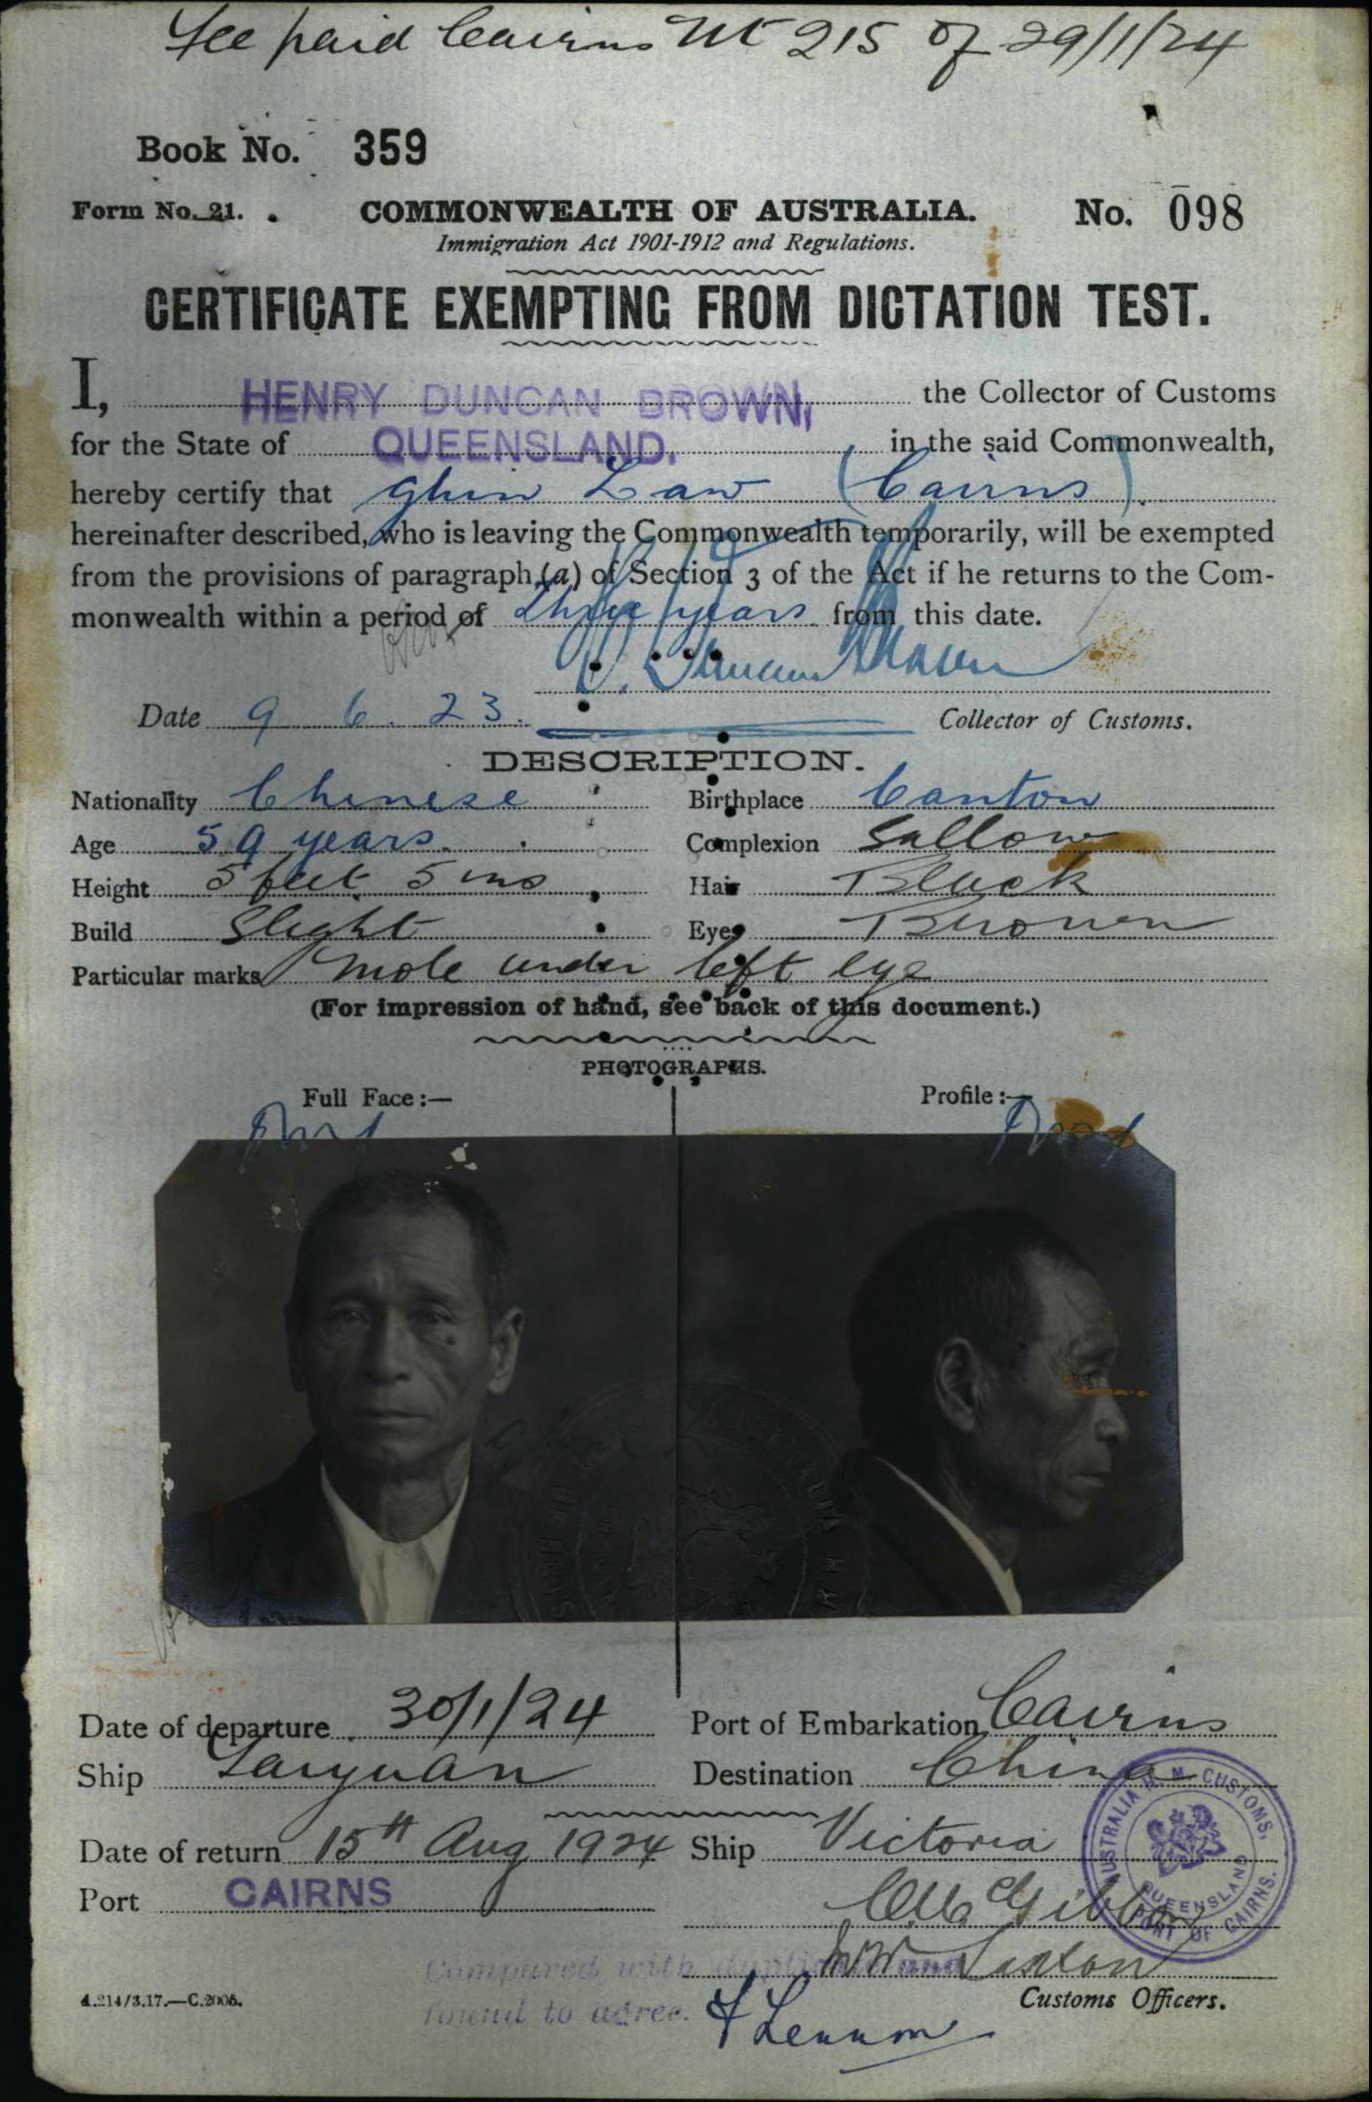 Fee paid Cairns No 215 of 29/1/24
Book No. 359
Form No. 21. COMMONWEALTH OF AUSTRALIA. No. 098
Immigration Act 1901-1912 and Regulations.
CERTIFICATE EXEMPTING FROM DICTATION TEST.
I, HENRY DUNCAN BROWN, the Collector of Customs
for the State of QUEENSLAND. in the said Commonwealth,
hereby certify that Ghin Law (Cairns)
hereinafter described, who is leaving the Commonwealth temporarily, will be exempted
from the provisions of paragraph (a) of Section 3 of the Act if he returns to the Com-
monwealth within a period of three years from this date.
Date 9.6.23. Collector of Customs.
DESCRIPTION.
Nationality Chinese Birthplace Canton
Age 59 years. Complexion Sallow
Height 5 feet 5 ins Hair Black
Build Slight Eyes Brown
Particular marks Mole under left eye
(For impression of hand, see back of this document.)
PHOTOGRAPHS.
Full Face:— Profile:—
Date of departure 30/1/24 Port of Embarkation Cairns
Ship Taiyuan Destination China
Date of return 15th Aug 1924 Ship Victoria
Port CAIRNS
AUSTRALIA H.M. CUSTOMS, QUEENSLAND PORT OF CAIRNS.
Compared with duplicate and
found to agree.
Customs Officers.
F Lennon